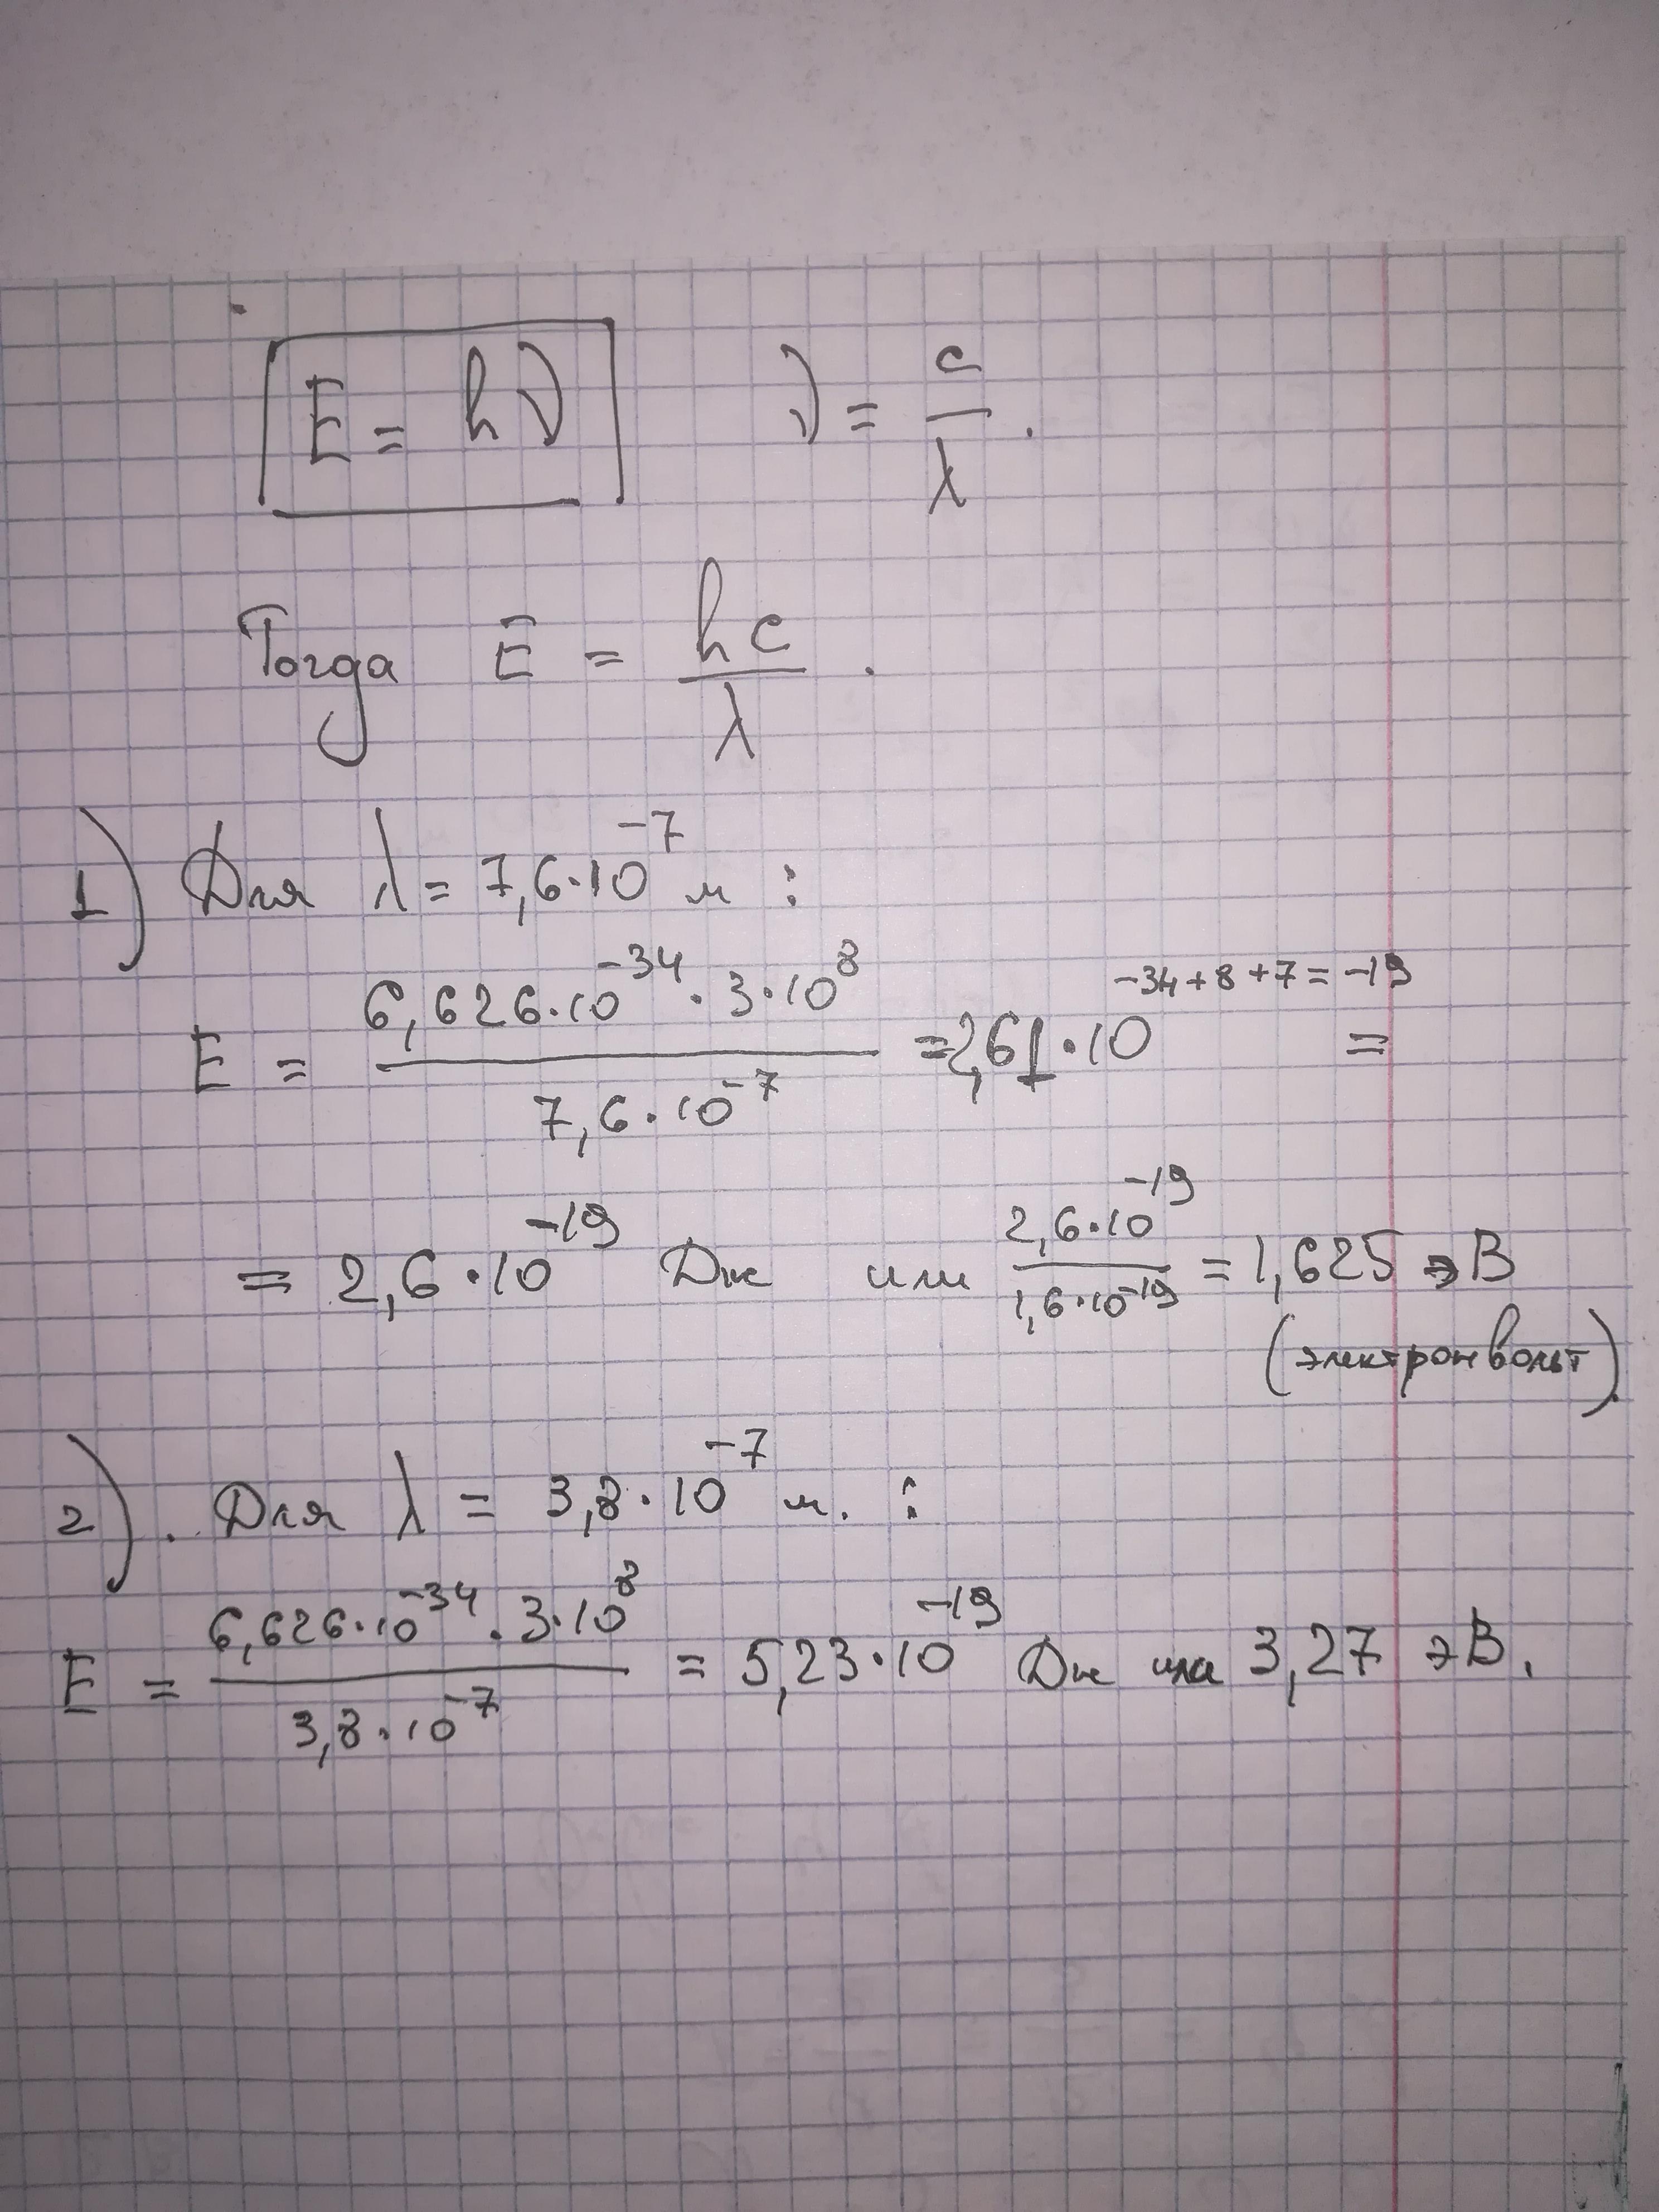 E = hν ν = c/λ .
Тогда E = hc/λ .
1) Для λ = 7,6·10⁻⁷ м :
E = 6,626·10⁻³⁴ · 3·10⁸ / 7,6·10⁻⁷ = 2,61·10⁻³⁴⁺⁸⁺⁷⁼⁻¹⁹ =
= 2,6·10⁻¹⁹ Дж или 2,6·10⁻¹⁹ / 1,6·10⁻¹⁹ = 1,625 эВ
(электронвольт)
2). Для λ = 3,8·10⁻⁷ м. :
E = 6,626·10⁻³⁴ · 3·10⁸ / 3,8·10⁻⁷ = 5,23·10⁻¹⁹ Дж или 3,27 эВ.